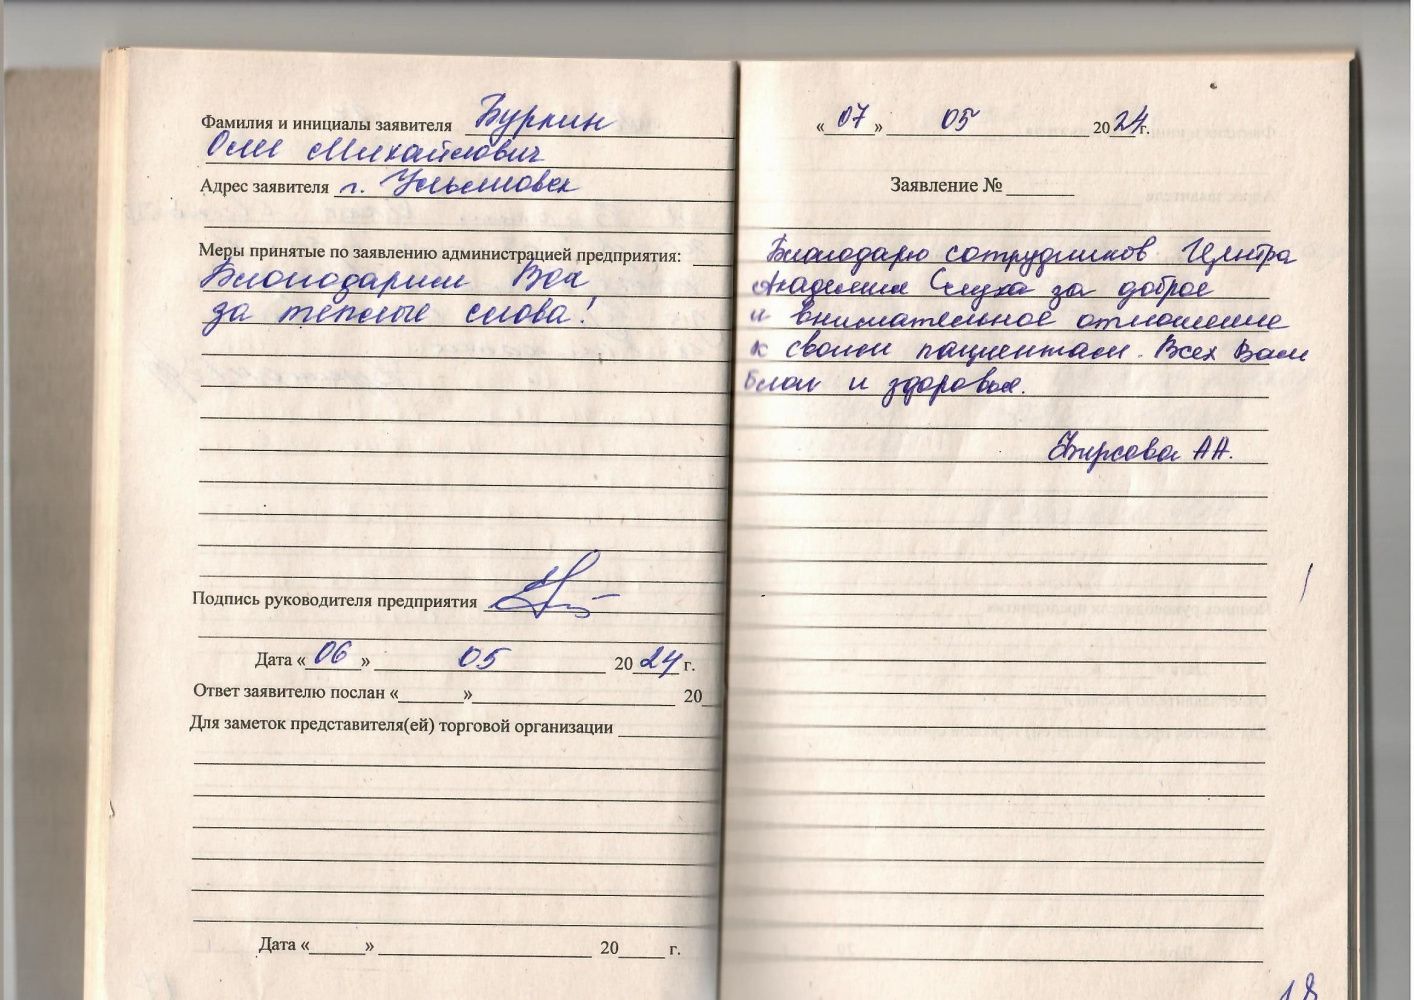 Фамилия и инициалы заявителя Буркин
Олег Михайлович
Адрес заявителя г. Ульяновск
Меры принятые по заявлению администрацией предприятия:
Благодарим Вас
за тёплые слова!
Подпись руководителя предприятия
Дата «06» 05 2024 г.
Ответ заявителю послан «______»______ 20
Для заметок представителя(ей) торговой организации
Дата «______» ______ 20____ г.
«07» 05 2024г.
Заявление № ______
Благодарю сотрудников Центра
Академия Слуха за доброе
и внимательное отношение
к своим пациентам. Всех Вам
благ и здоровья.
А.А.
18